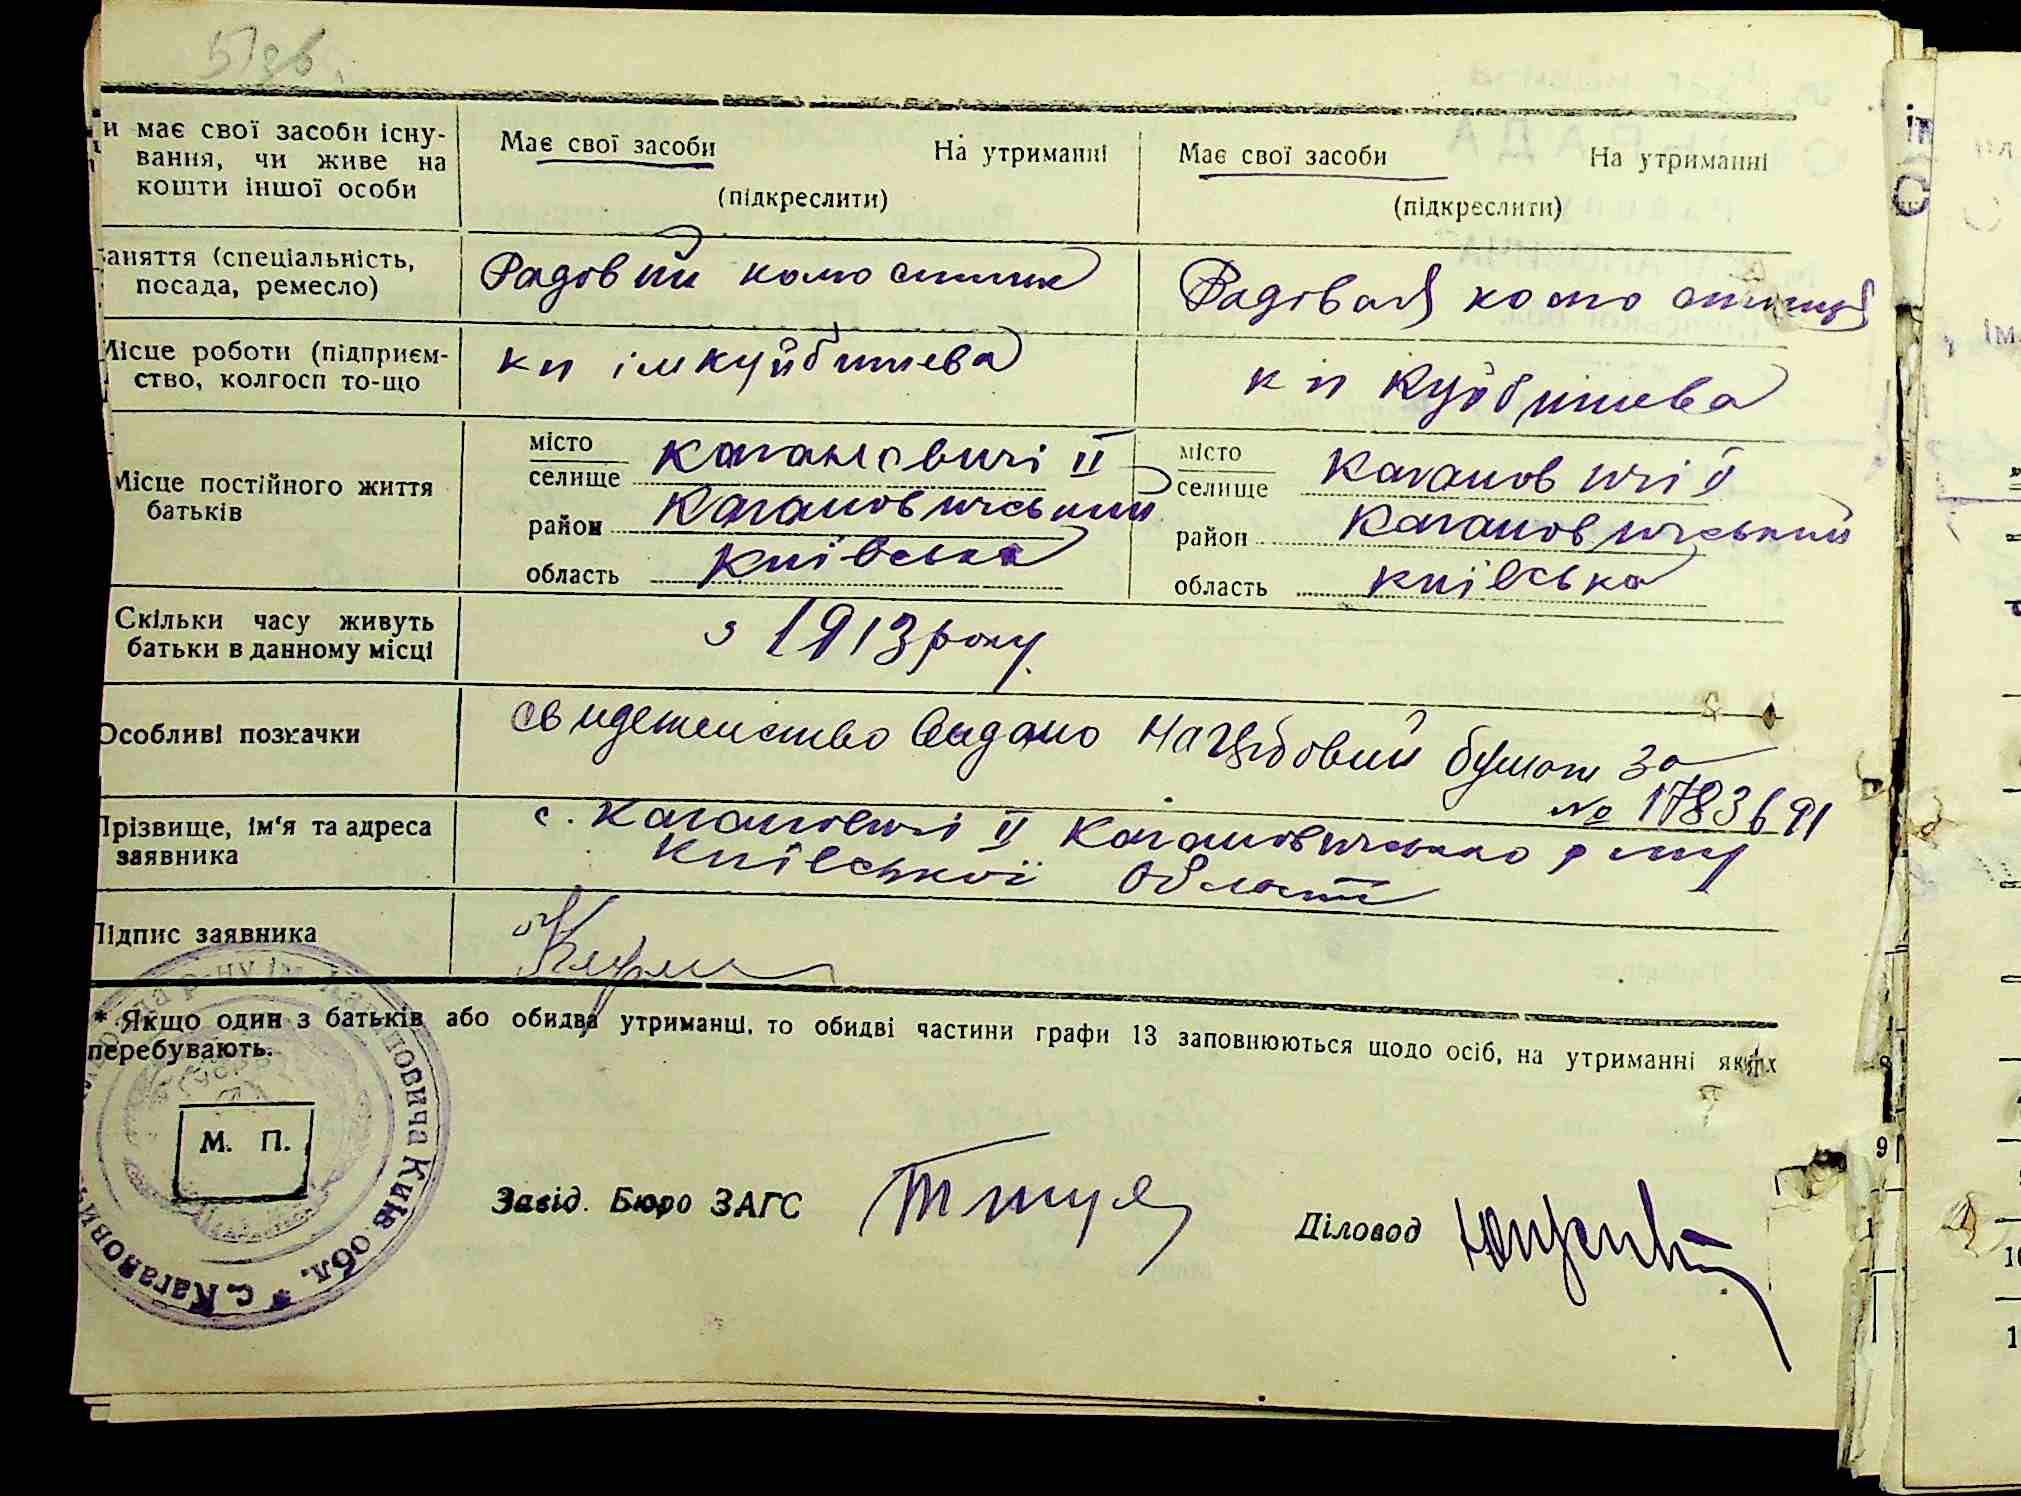 и має свої засоби існу-
вання, чи живе на
кошти іншої особи
Має свої засоби На утриманні
(підкреслити)
Має свої засоби На утриманні
(підкреслити)
аняття (спеціальність,
посада, ремесло)
Рядовий
Рядовая
Місце роботи (підприєм-
ство, колгосп то-що
кп ім куйбишева
кп Куйбишева
Місце постійного життя
батьків
місто
селище Кагановичі II
район Кагановичський
область Київська
місто
селище Кагановичі II
район Кагановичський
область Київська
Скільки часу живуть
батьки в данному місці
з 1913 року
Особливі позначки
свидетельство видано на гербовий бумаги за
№ 1783691
Прізвище, ім'я та адреса
заявника
с. Кагановичі II Кагановичського р-ну
Київської Області
Підпис заявника
* Якщо один з батьків або обидва утриманці, то обидві частини графи 13 заповнюються щодо осіб, на утриманні яких
перебувають.
М. П.
Київ обл. * с. Каганови
Завід. Бюро ЗАГС
Діловод